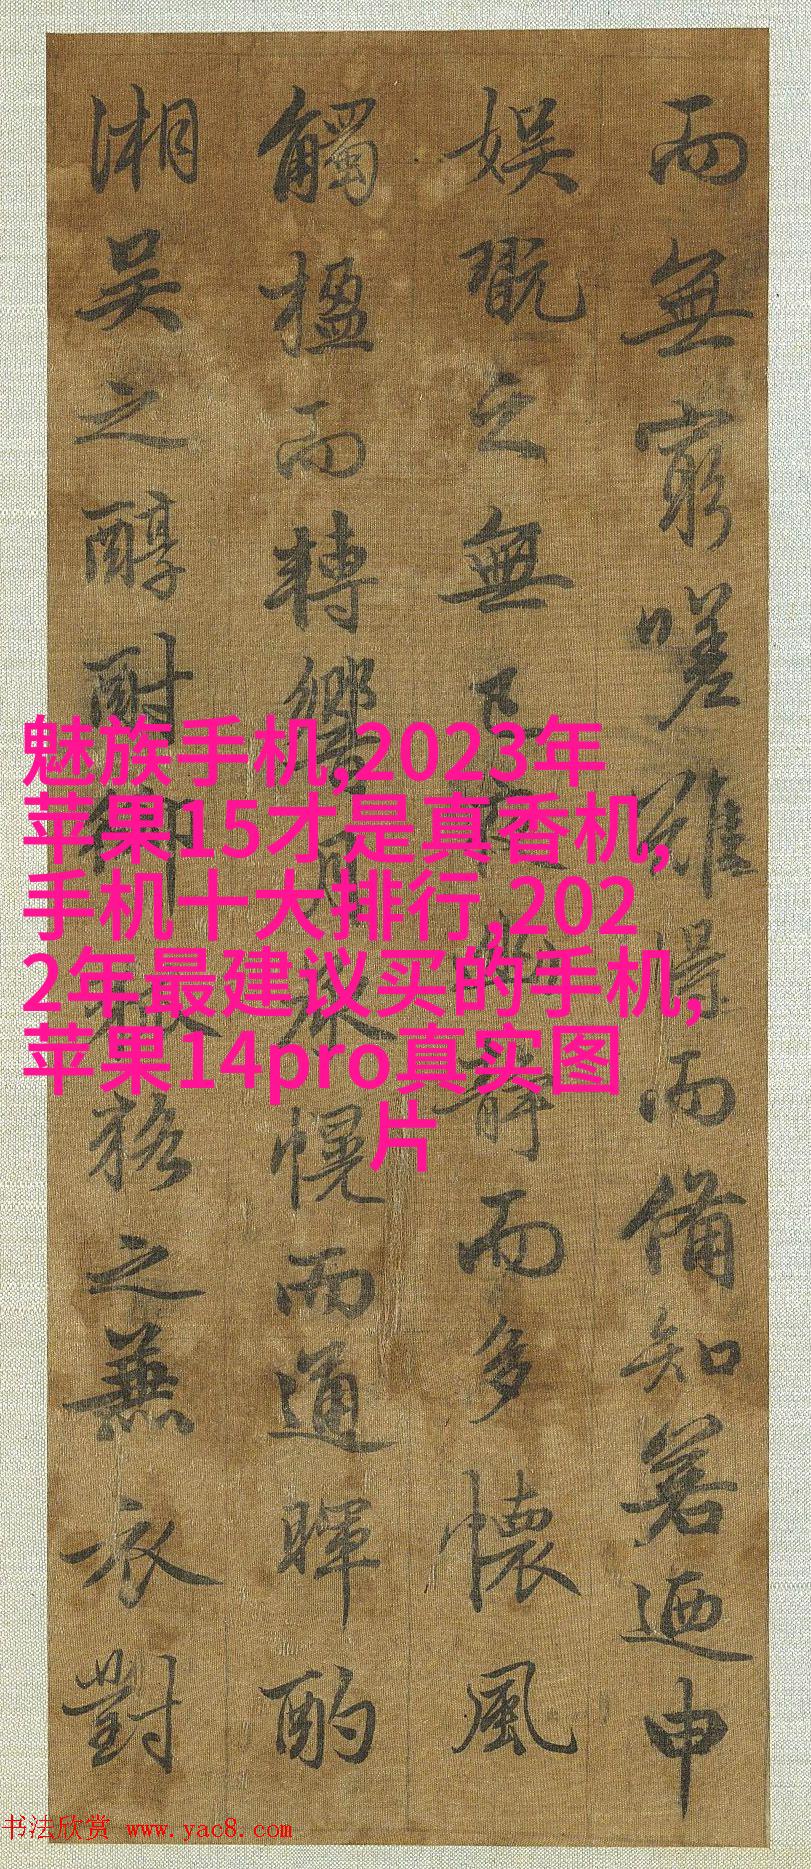 而無窮嗟難得而備知若迺申
娛翫之無已靜而多懷風
觸楹而轉響月承幌而通暉酌
湘吳之醇酎御狐狢之兼衣對
魅族手机,2023年
苹果15才是真香机,
手机十大排行,202
2年最建议买的手机,
苹果14pro真实图
片
书法欣赏 www.yac8.com